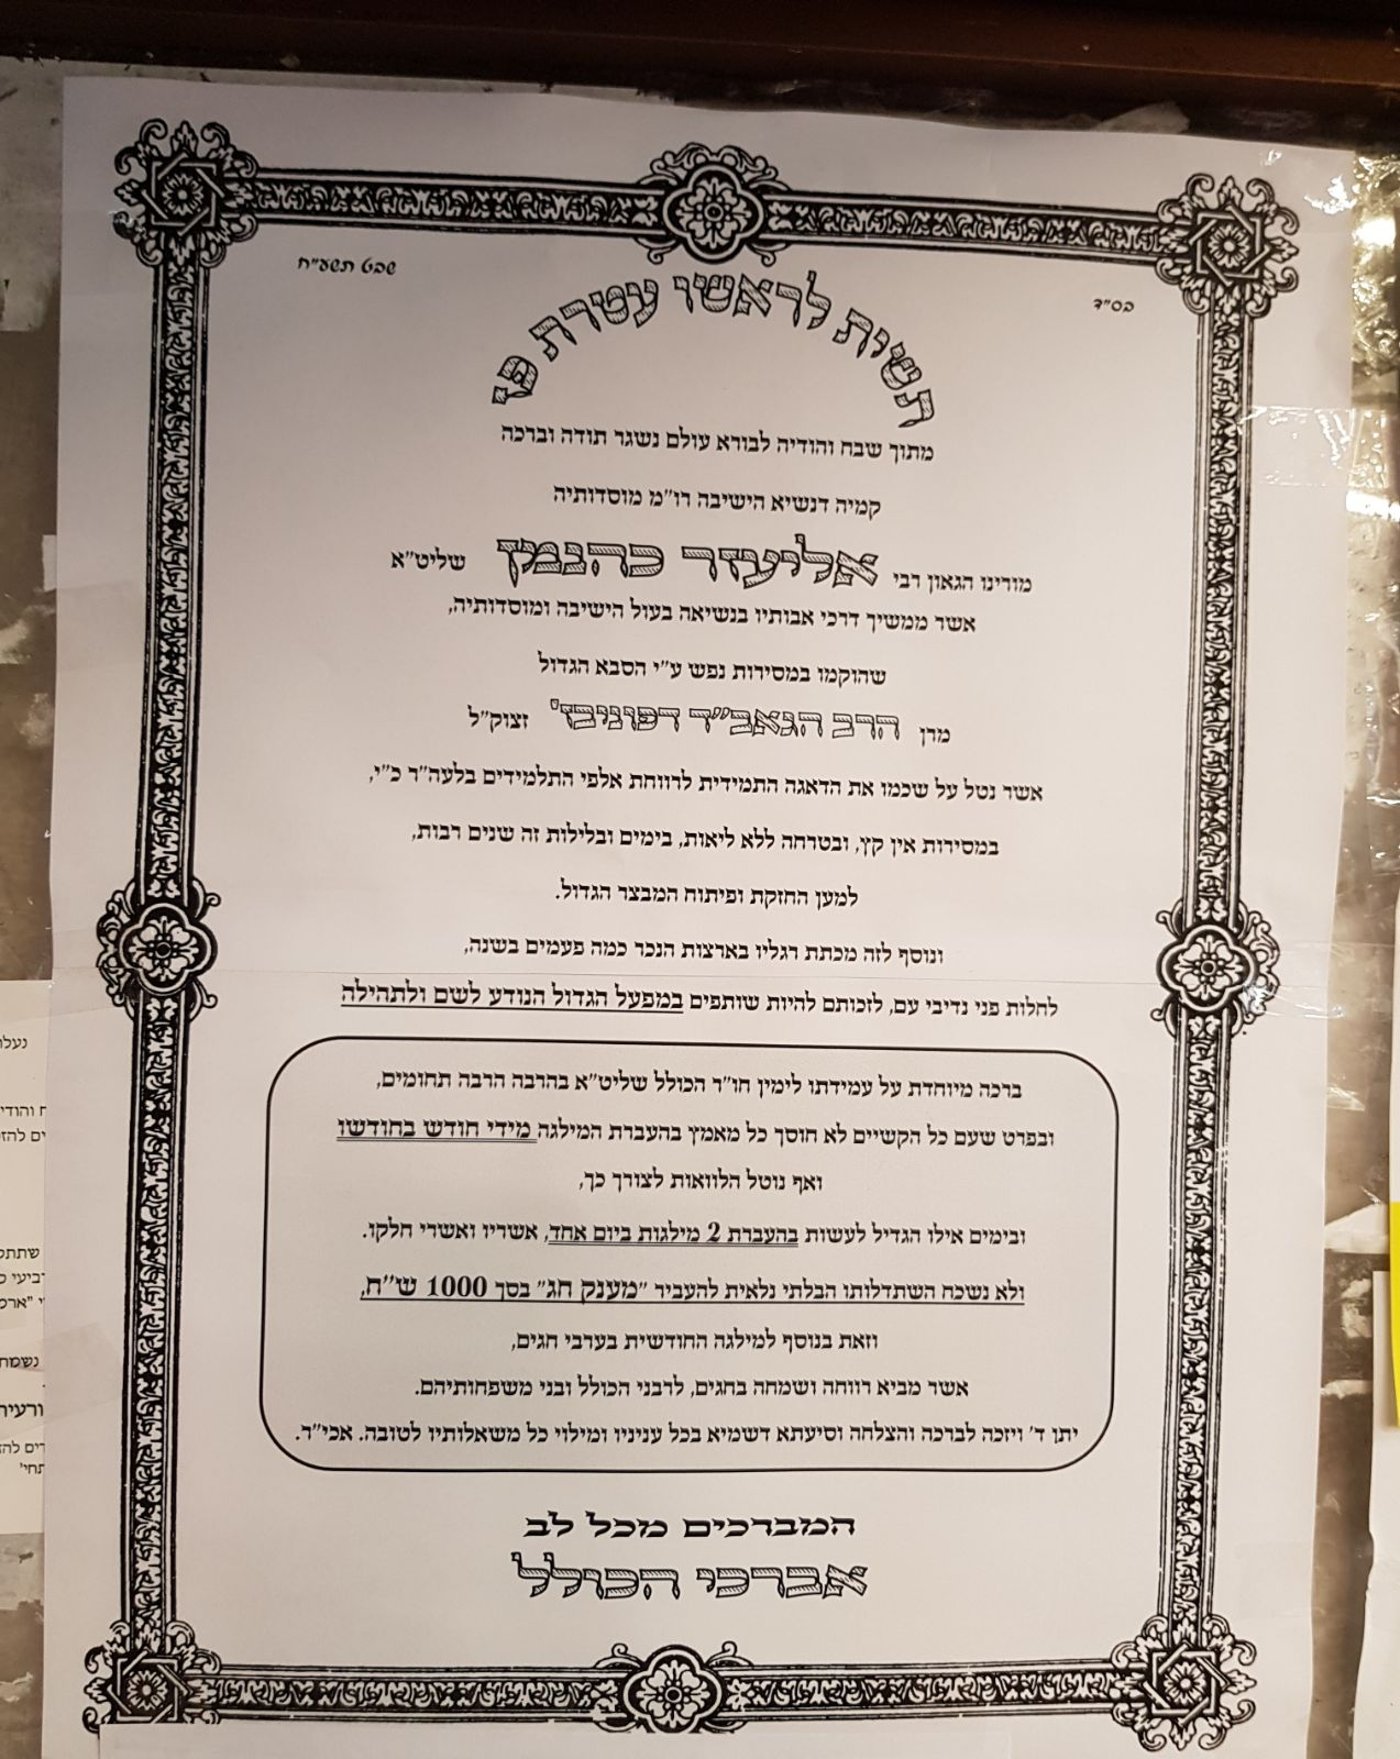 בס"ד
שבט תשע"ח
תשית לראשו עטרת פז
מתוך שבח והודיה לבורא עולם נשגר תודה וברכה
קמיה דנשיא הישיבה רו"מ מוסדותיה
מורינו הגאון רבי אליעזר כהנמן שליט"א
אשר ממשיך דרכי אבותיו בנשיאה בעול הישיבה ומוסדותיה,
שהוקמו במסירות נפש ע"י הסבא הגדול
מרן הרב הגאב"ד דפוניבז' זצוק"ל
אשר נטל על שכמו את הדאגה התמידית לרווחת אלפי התלמידים בלעה"ר כ"י,
במסירות אין קץ, ובטרחה ללא ליאות, בימים ובלילות זה שנים רבות,
למען החזקת ופיתוח המבצר הגדול.
ונוסף לזה מכתת רגליו בארצות הנכר כמה פעמים בשנה,
לחלות פני נדיבי עם, לזכותם להיות שותפים במפעל הגדול הנודע לשם ולתהילה
ברכה מיוחדת על עמידתו לימין חו"ר הכולל שליט"א בהרבה הרבה תחומים,
ובפרט שעם כל הקשיים לא חוסך כל מאמץ בהעברת המילגה מידי חודש בחודשו
ואף נוטל הלוואות לצורך כך,
ובימים אילו הגדיל לעשות בהעברת 2 מילגות ביום אחד, אשריו ואשרי חלקו.
ולא נשכח השתדלותו הבלתי נלאית להעביר "מענק חג" בסך 1000 ש"ח,
וזאת בנוסף למילגה החודשית בערבי חגים,
אשר מביא רווחה ושמחה בחגים, לרבני הכולל ובני משפחותיהם.
יתן ד' ויזכה לברכה והצלחה וסיעתא דשמיא בכל עניניו ומילוי כל משאלותיו לטובה. אכי"ר.
המברכים מכל לב
אברכי הכולל